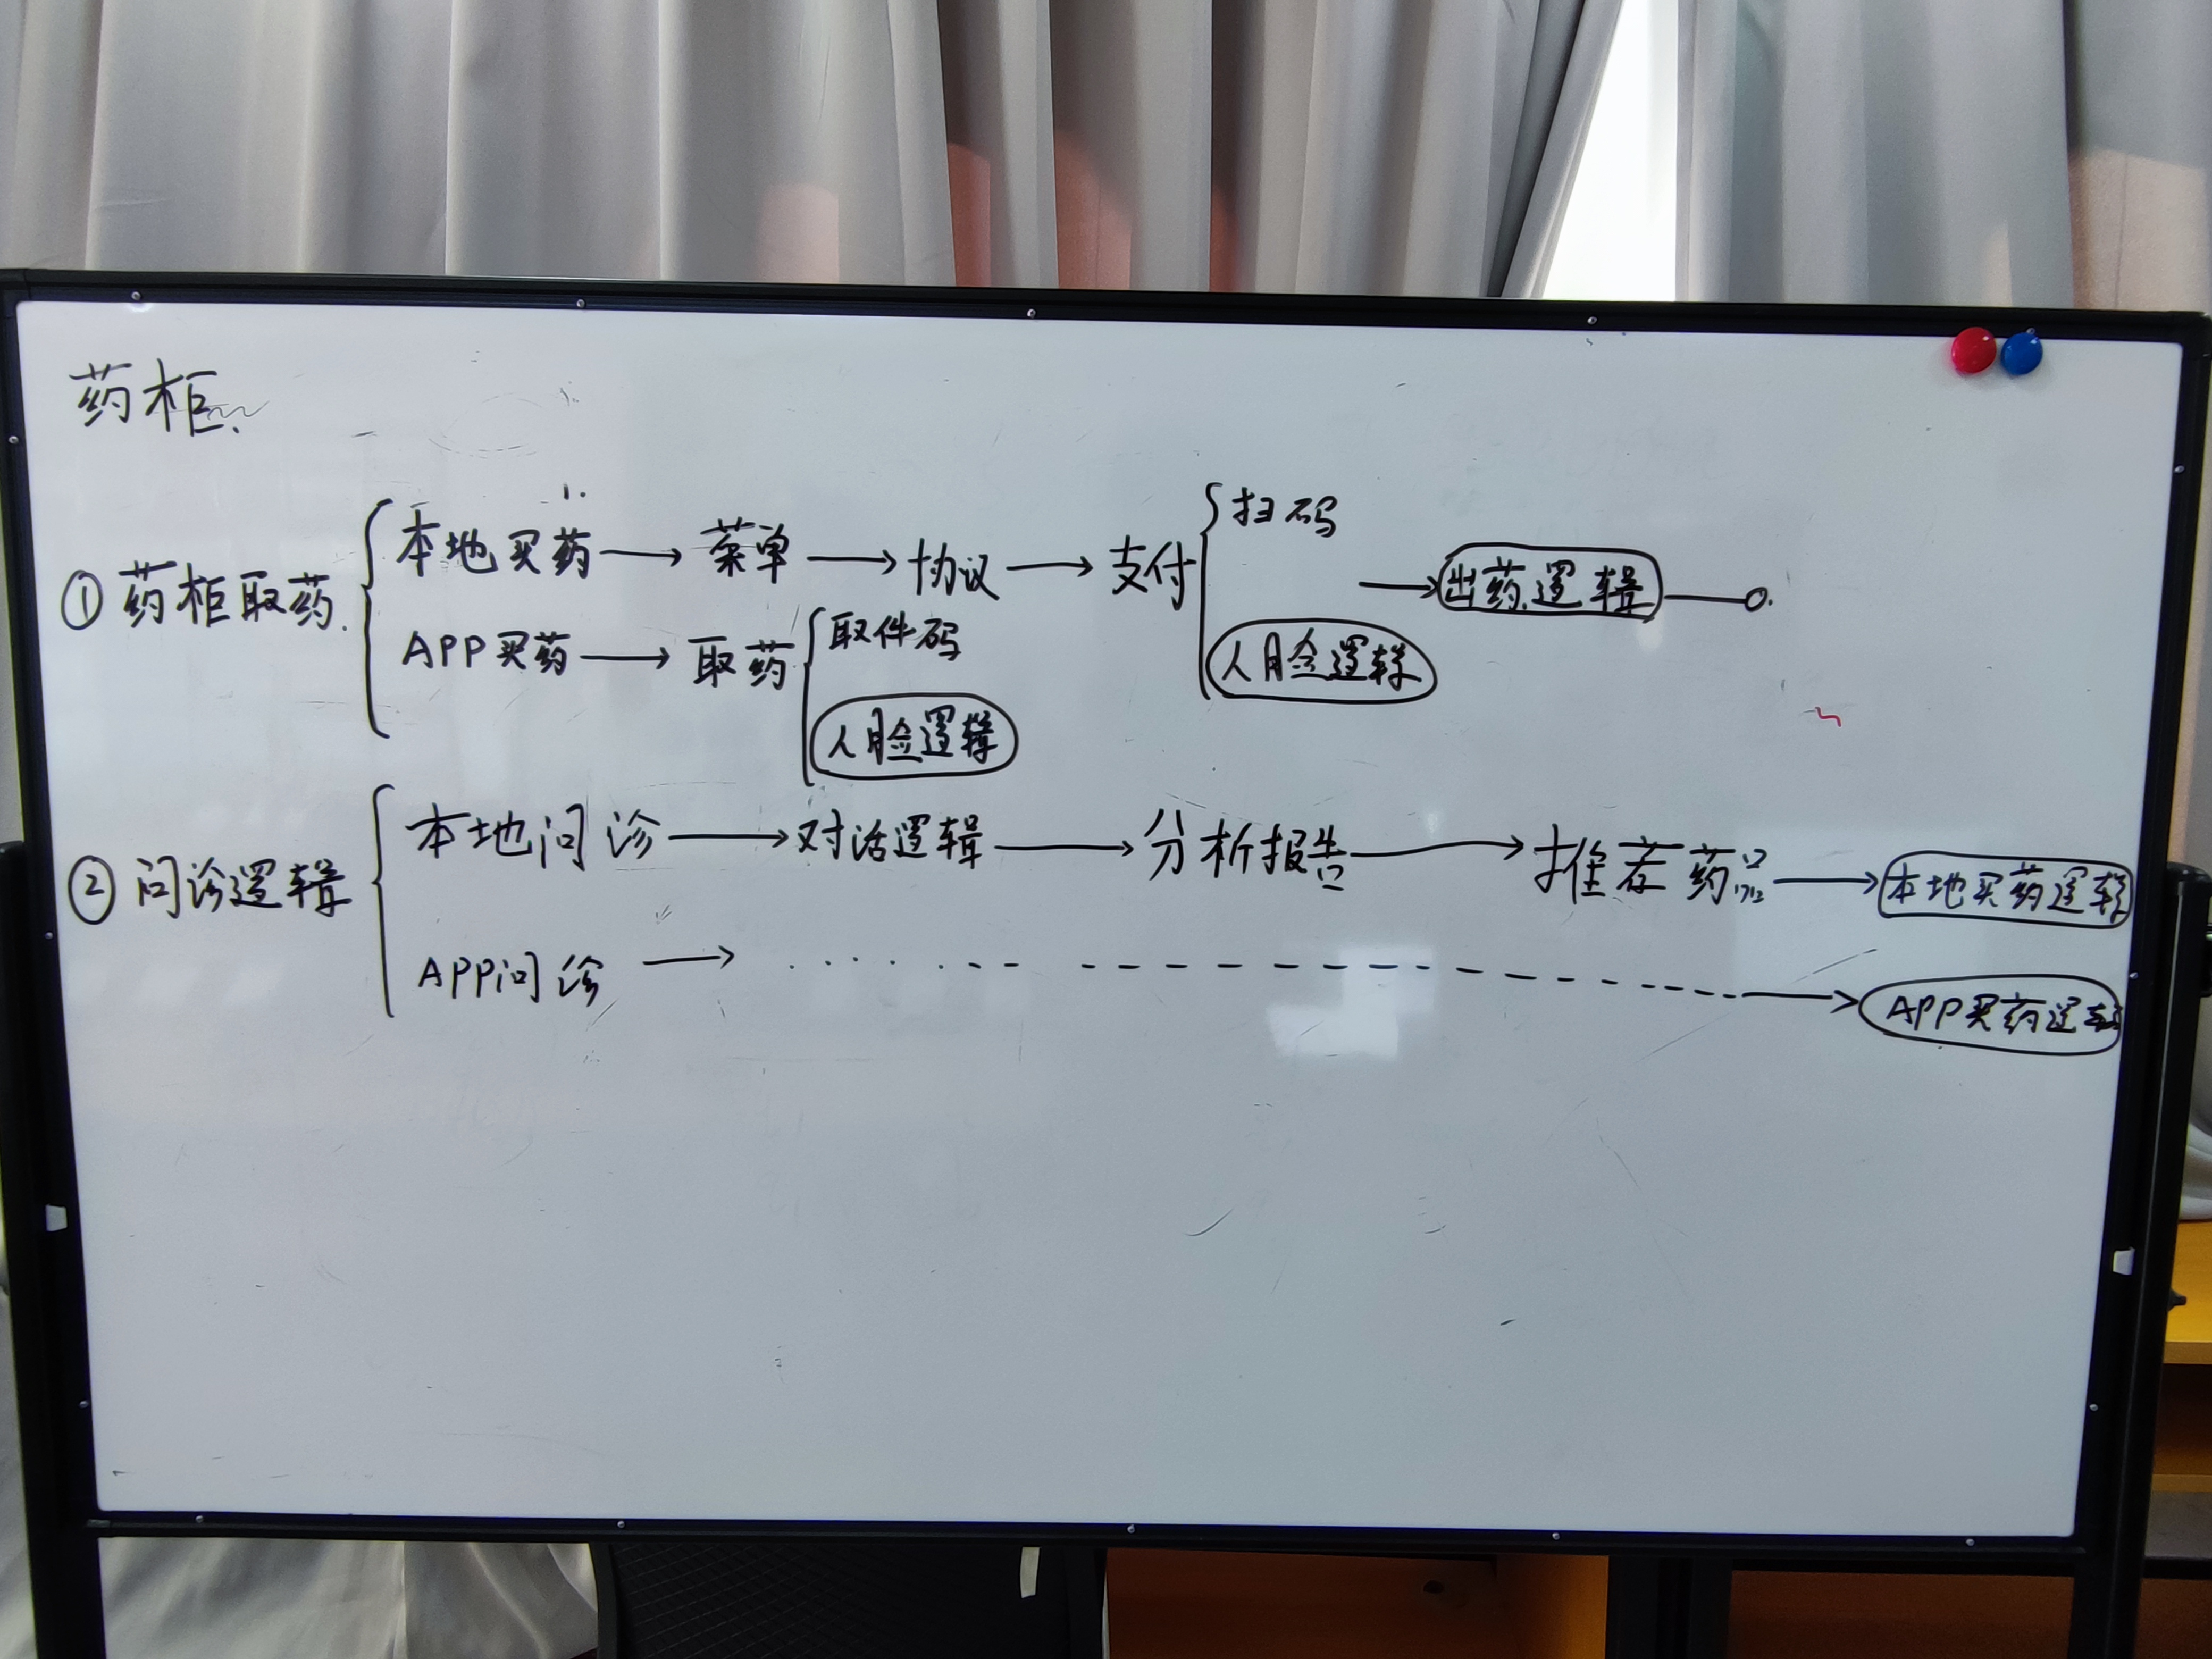 药柜.
①药柜取药.
本地买药→菜单→协议→支付
扫码
人脸逻辑
→出药逻辑
APP买药→取药
取件码
人脸逻辑
②问诊逻辑
本地问诊→对话逻辑→分析报告→推荐药品→本地买药逻辑
APP问诊→→APP买药逻辑